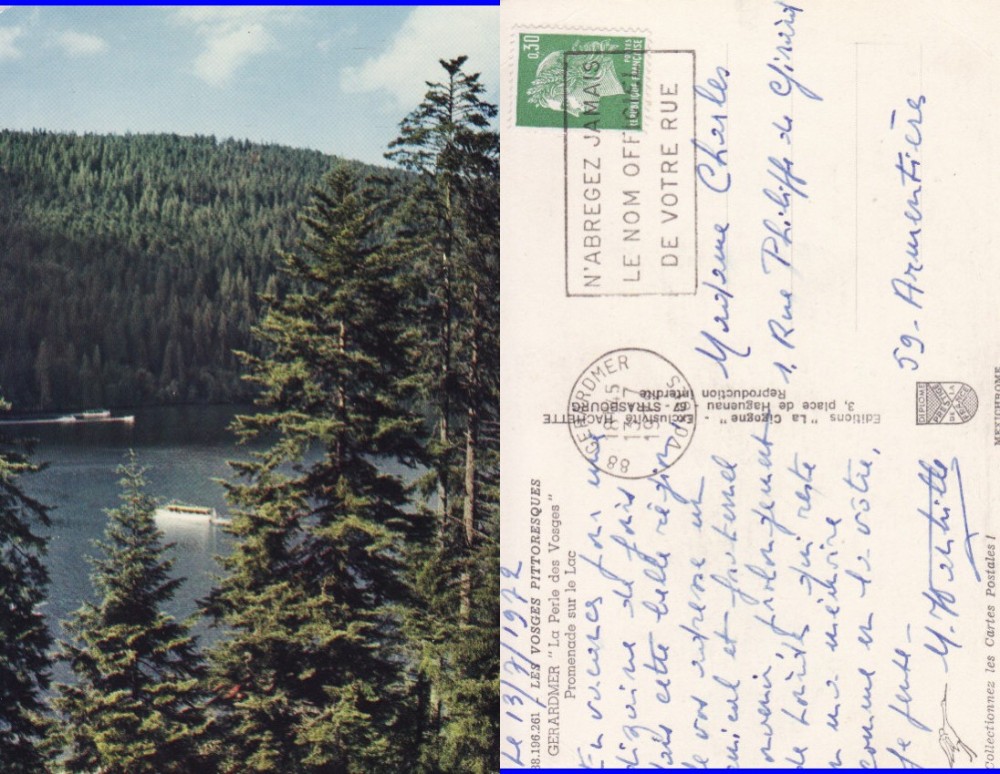 0.30
POSTES
REPUBLIQUE FRANÇAISE
N'ABREGEZ JAMAIS
LE NOM OFFICIEL
DE VOTRE RUE
GERARDMER
18H45
13-7
VOSGES
88
Madame Charles
1. Rue Philippe de Girard
59 - Armentières
Editions "La Cigogne" - Exclusivité HACHETTE
3, place de Haguenau - 67 - STRASBOURG
Reproduction interdite
MEXICHROME
88.196.261 LES VOSGES PITTORESQUES
GERARDMER "La Perle des Vosges"
Promenade sur le Lac
Le 13/7/1972
En vacances pour une
dizaine de jours
dans cette belle région
je vous adresse un
amical et fraternel
souvenir prolongement
de qui reste
en ma mémoire
comme en la vôtre,
je pense -
Collectionnez les Cartes Postales !